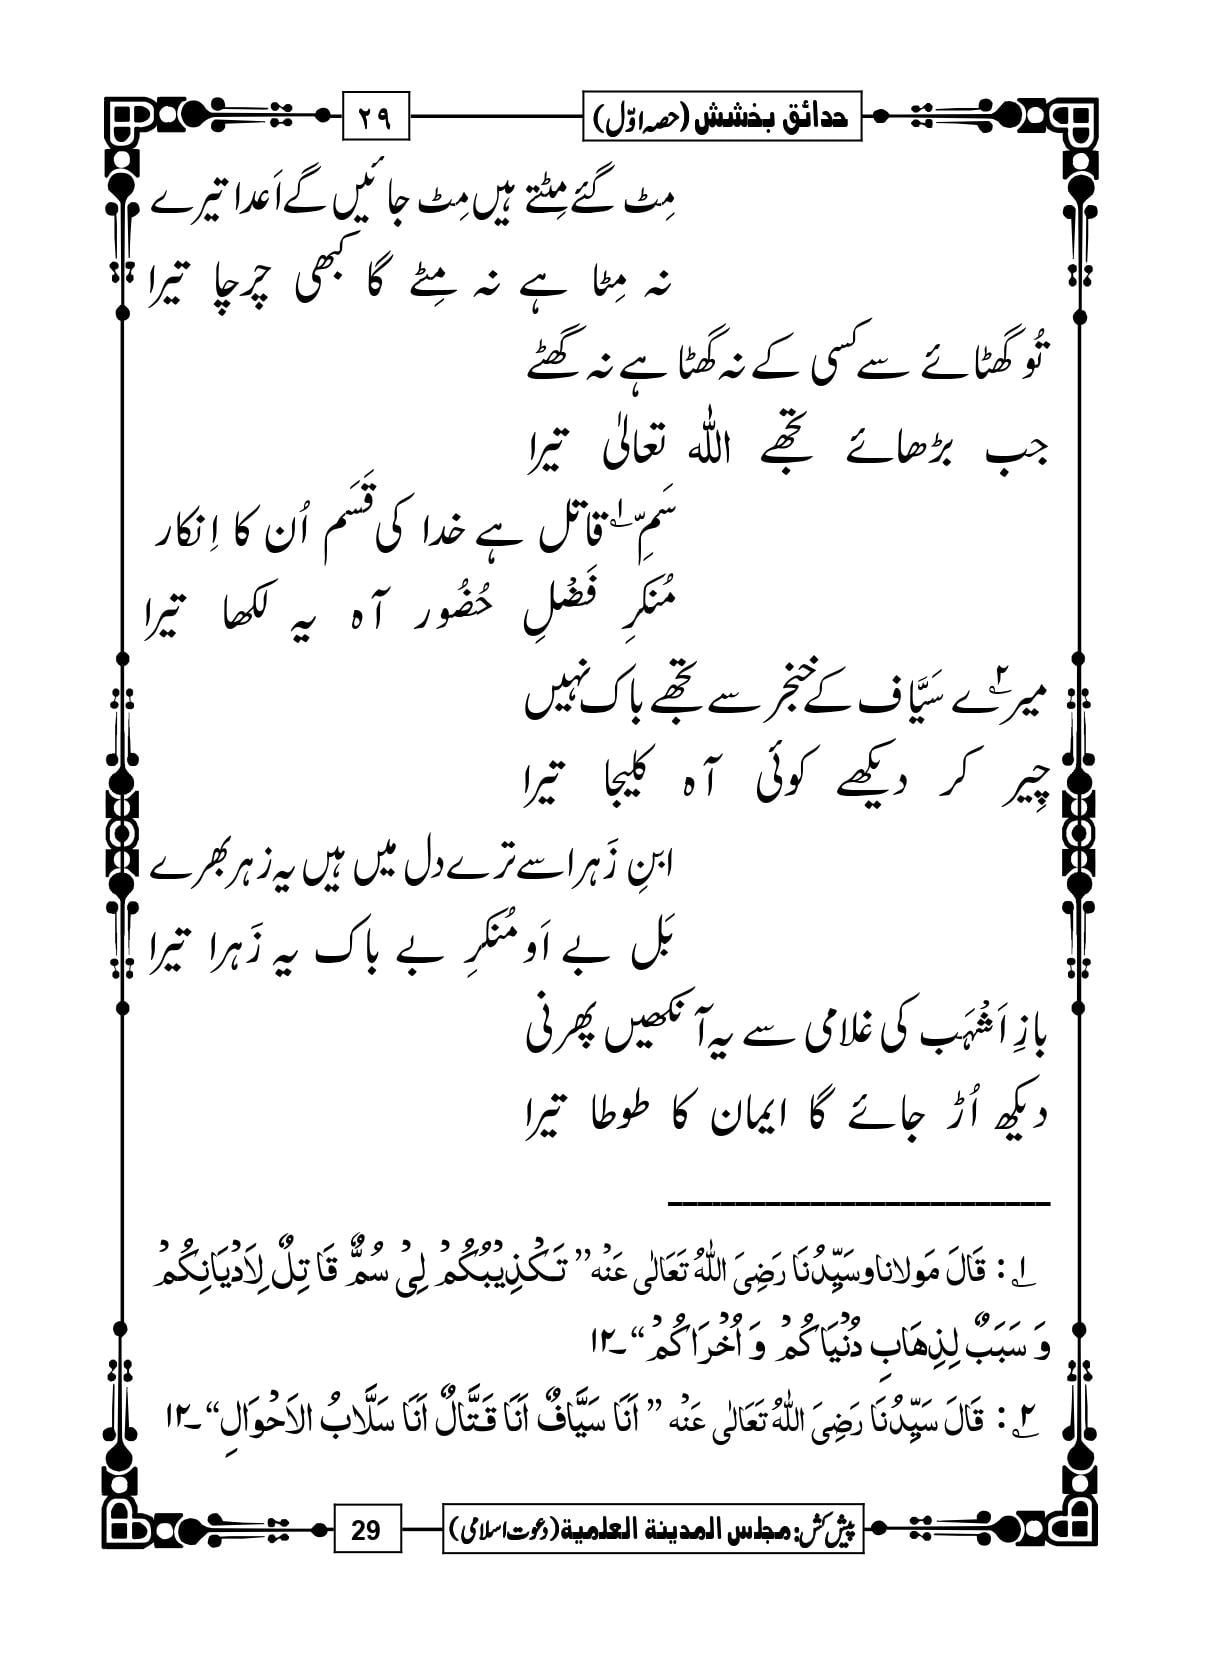 حدائق بخشش (حصہ اوّل)
۲۹
مِٹ گئے مِٹتے ہیں مِٹ جائیں گے اَعدا تیرے
نہ مِٹا ہے نہ مِٹے گا کبھی چرچا تیرا
تُو گھٹائے سے کسی کے نہ گھٹا ہے نہ گھٹے
جب بڑھائے تجھے اللہ تعالٰی تیرا
سَمِّ؁۱ قاتل ہے خدا کی قَسَم اُن کا اِنکار
مُنکرِ فَضْلِ حُضُور آہ یہ لکھا تیرا
میرے؁۲ سَیَّاف کے خنجر سے تجھے باک نہیں
چِیر کر دیکھے کوئی آہ کلیجا تیرا
ابنِ زَہرا سے ترے دل میں ہیں یہ زہر بھرے
بَل بے اَو مُنکرِ بے باک یہ زَہرا تیرا
بازِ اَشْہَب کی غلامی سے یہ آنکھیں پھرنی
دیکھ اُڑ جائے گا ایمان کا طوطا تیرا
؁۱ : قَالَ مَولانا وسَیِّدُنَا رَضِیَ اللہُ تَعَالٰی عَنْہ ’’ تَـکْـذِیْبُکُمْ لِیْ سُمٌّ قَاتِلٌ لِاَدْیَانِکُمْ
وَ سَبَبٌ لِذِھَابِ دُنْیَاکُمْ وَ اُخْرَاکُمْ ‘‘۔۱۲
؁۲ : قَالَ سَیِّدُنَا رَضِیَ اللہُ تَعَالٰی عَنْہ ’’ اَنَا سَیَّافٌ اَنَا قَـتَّالٌ اَنَا سَلَّابُ الاَحْوَالِ‘‘۔۱۲
پیش کش: مجلس المدینۃ العلمیۃ (دعوت اسلامی)
29